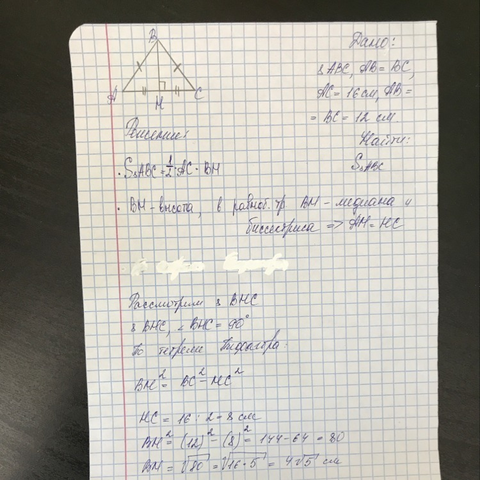 B
Дано:
△ABC, AB = BC,
A H C
AC = 16 см, AB =
= BC = 12 см
Решение:
Найти:
S△ABC
· S△ABC = 1/2 · AC · BH
· BH - высота, в равноб. тр. BH - медиана и
биссектриса => AH = HC
Рассмотрим △ BHC
△ BHC, ∠ BHC = 90°
По теореме Пифагора:
BH² = BC² - HC²
HC = 16 : 2 = 8 см
BH² = (12)² - (8)² = 144 - 64 = 80
BH = √80 = √16·5 = 4√5 см